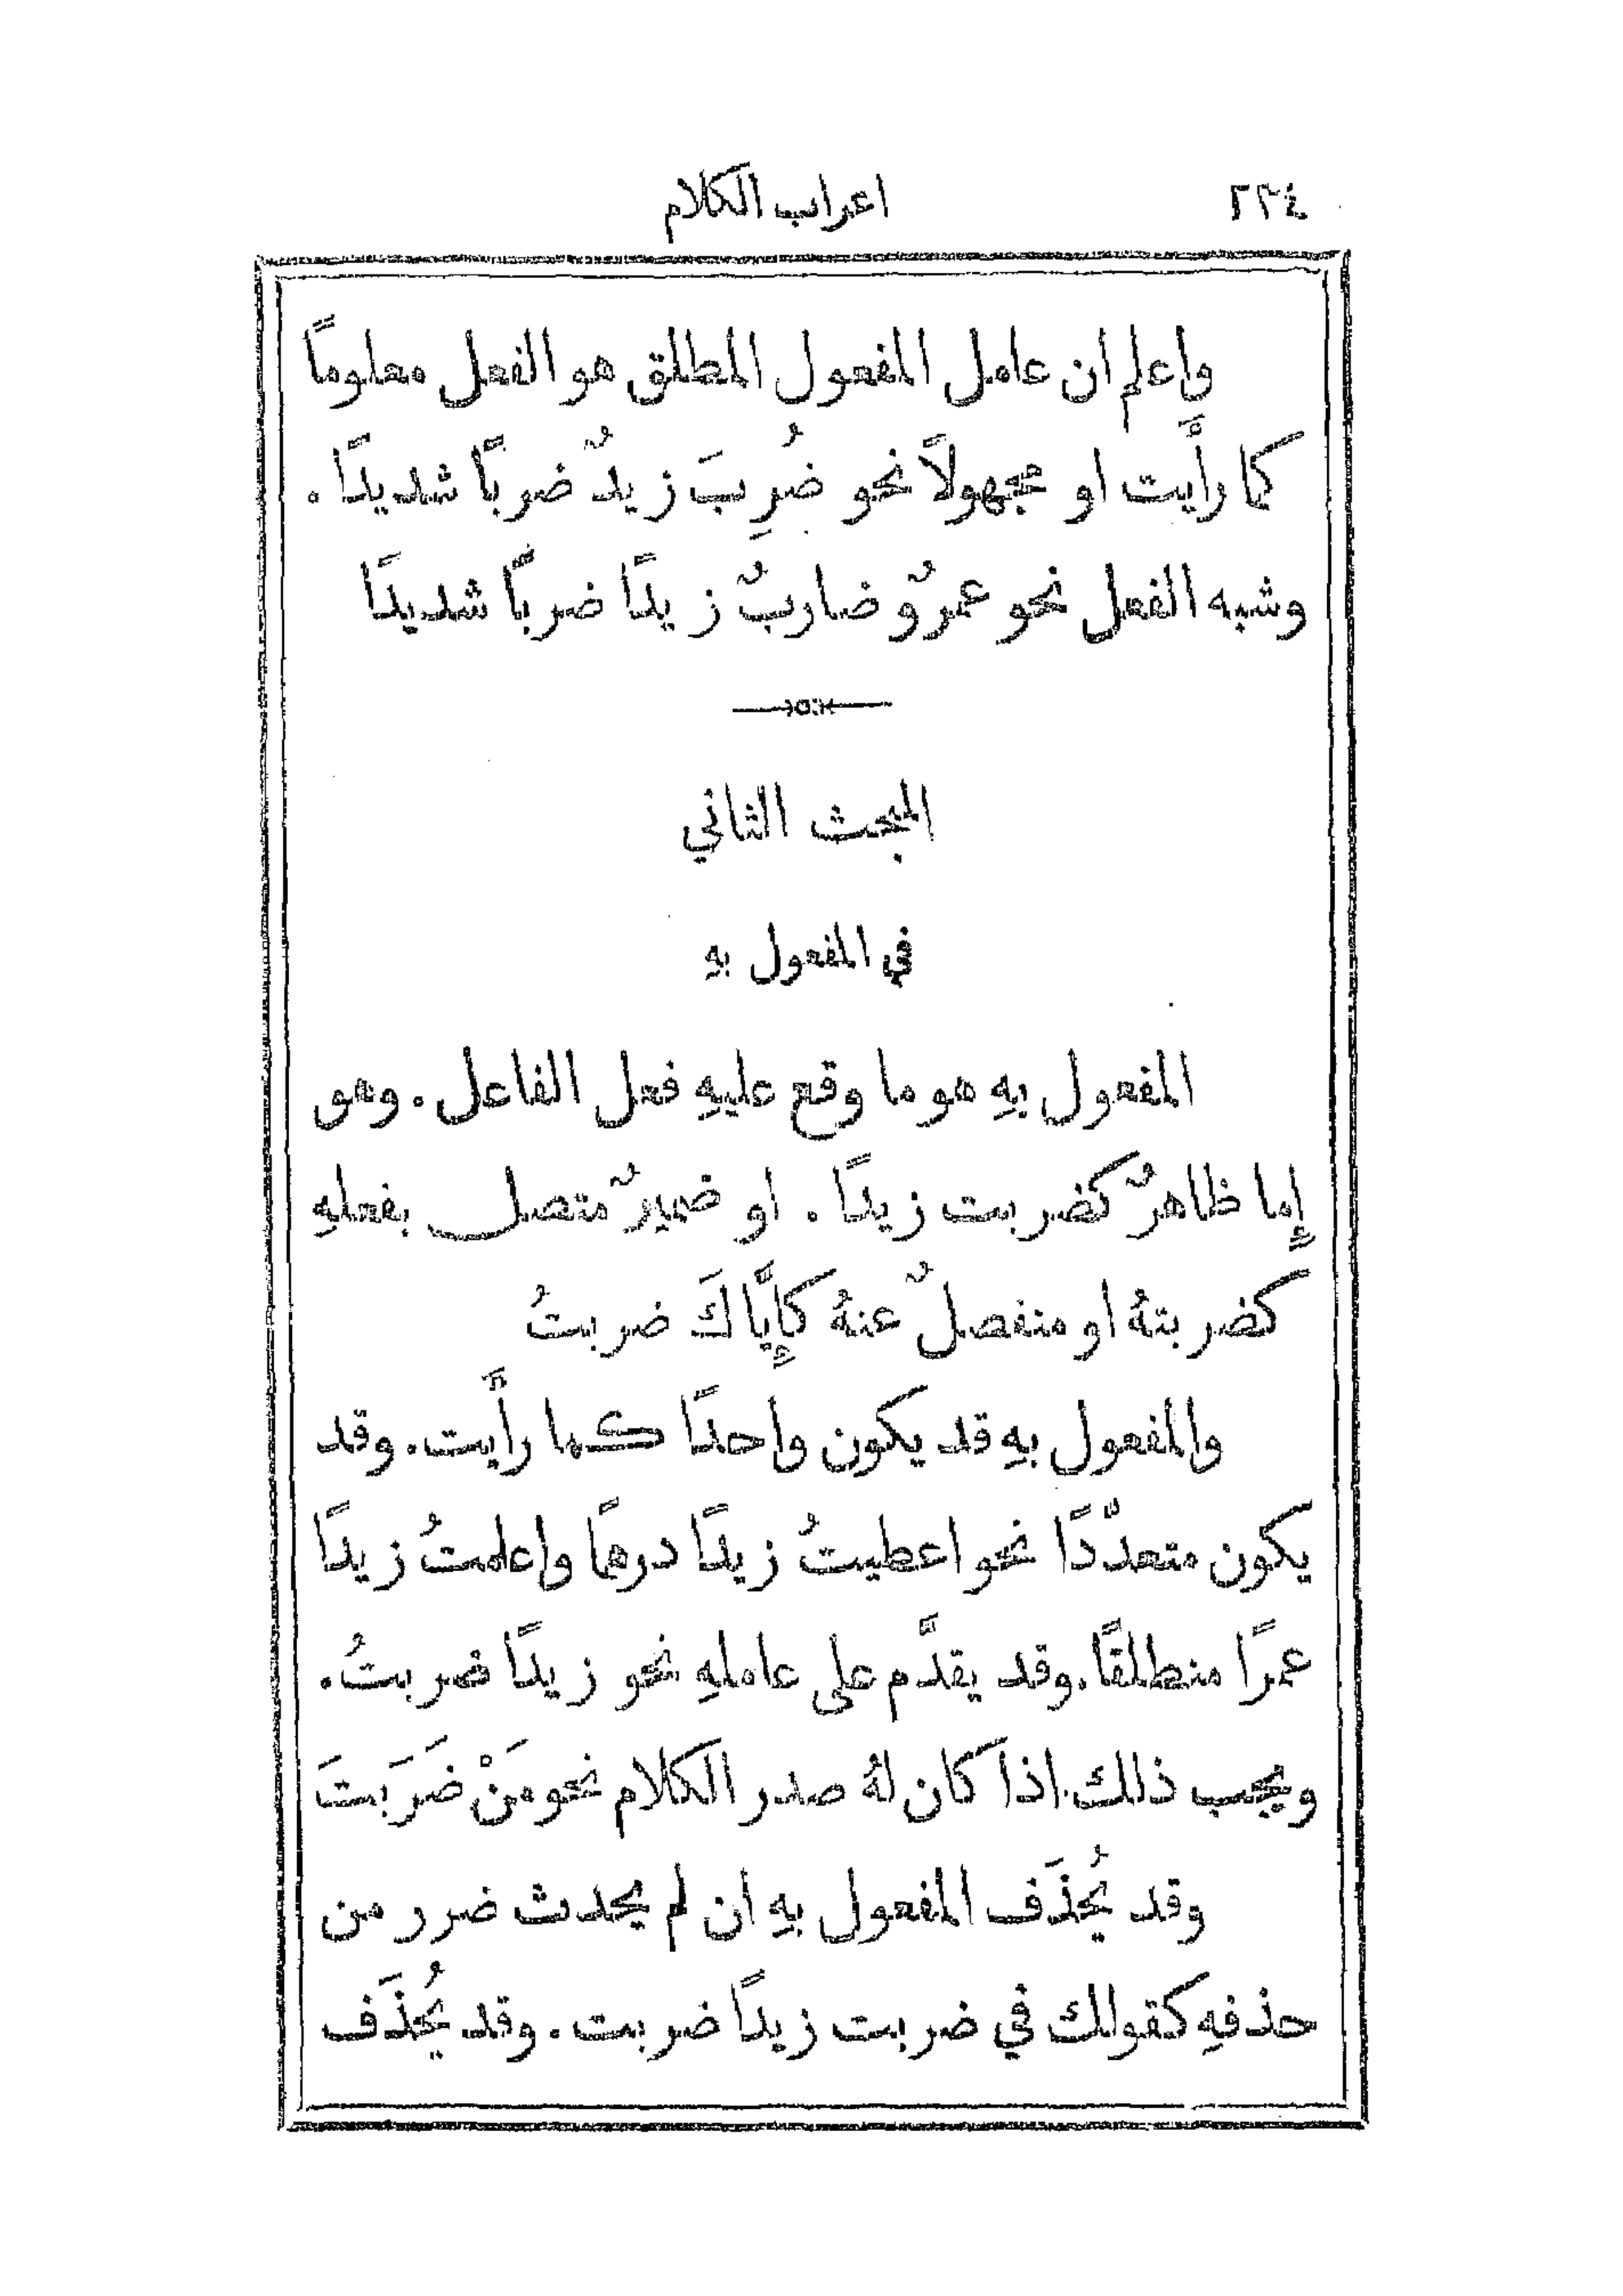 ٢٣٤ اعراب الكلام
واعلم ان عامل المفعول المطلق هو الفعل معلومًا
كما رأَيت او مجهولاً نحو ضُرِبَ زيدٌ ضربًا شديدًا.
وشبه الفعل نحو عمرٌو ضاربٌ زيدًا ضربًا شديدًا
المبحث الثاني
في المفعول بهِ
المفعول بهِ هو ما وقع عليهِ فعل الفاعل. وهو
إِما ظاهرٌ كضربت زيدًا. او ضميرٌ متصل بفعلهِ
كضربتهُ او منفصلٌ عنهُ كإِيَّاكَ ضربتُ
والمفعول بهِ قد يكون واحدًا كما رأَيت. وقد
يكون متعدّدًا نحو اعطيتُ زيدًا درهمًا واعلمتُ زيدًا
عمرًا منطلقًا. وقد يقدَّم على عاملهِ نحو زيدًا ضربتُ.
ويجب ذلك اذا كان لهُ صدر الكلام نحو مَنْ ضَرَبتَ
وقد يُحذَف المفعول بهِ ان لم يحدث ضرر من
حذفهِ كقولك في ضربت زيدًا ضربت. وقد يُحذَف